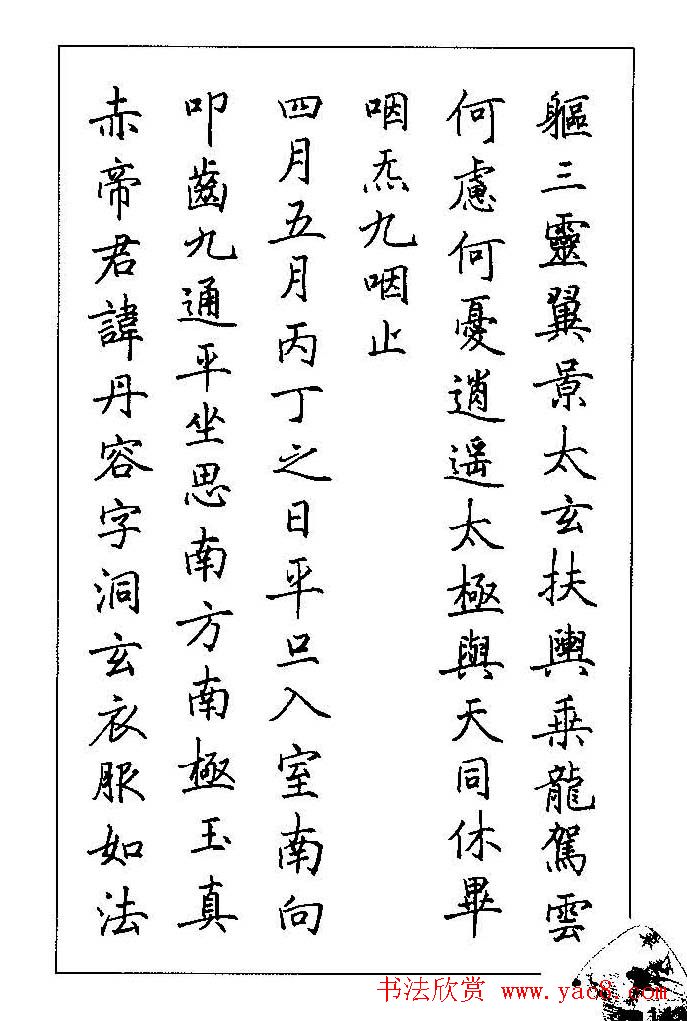 軀三靈翼景太玄扶輿乘龍駕雲
何慮何憂逍遥太極與天同休畢
咽炁九咽止
四月五月丙丁之日平旦入室南向
叩齒九通平坐思南方南極玉真
赤帝君諱丹容字洞玄衣服如法
书法欣赏 www.yac8.com